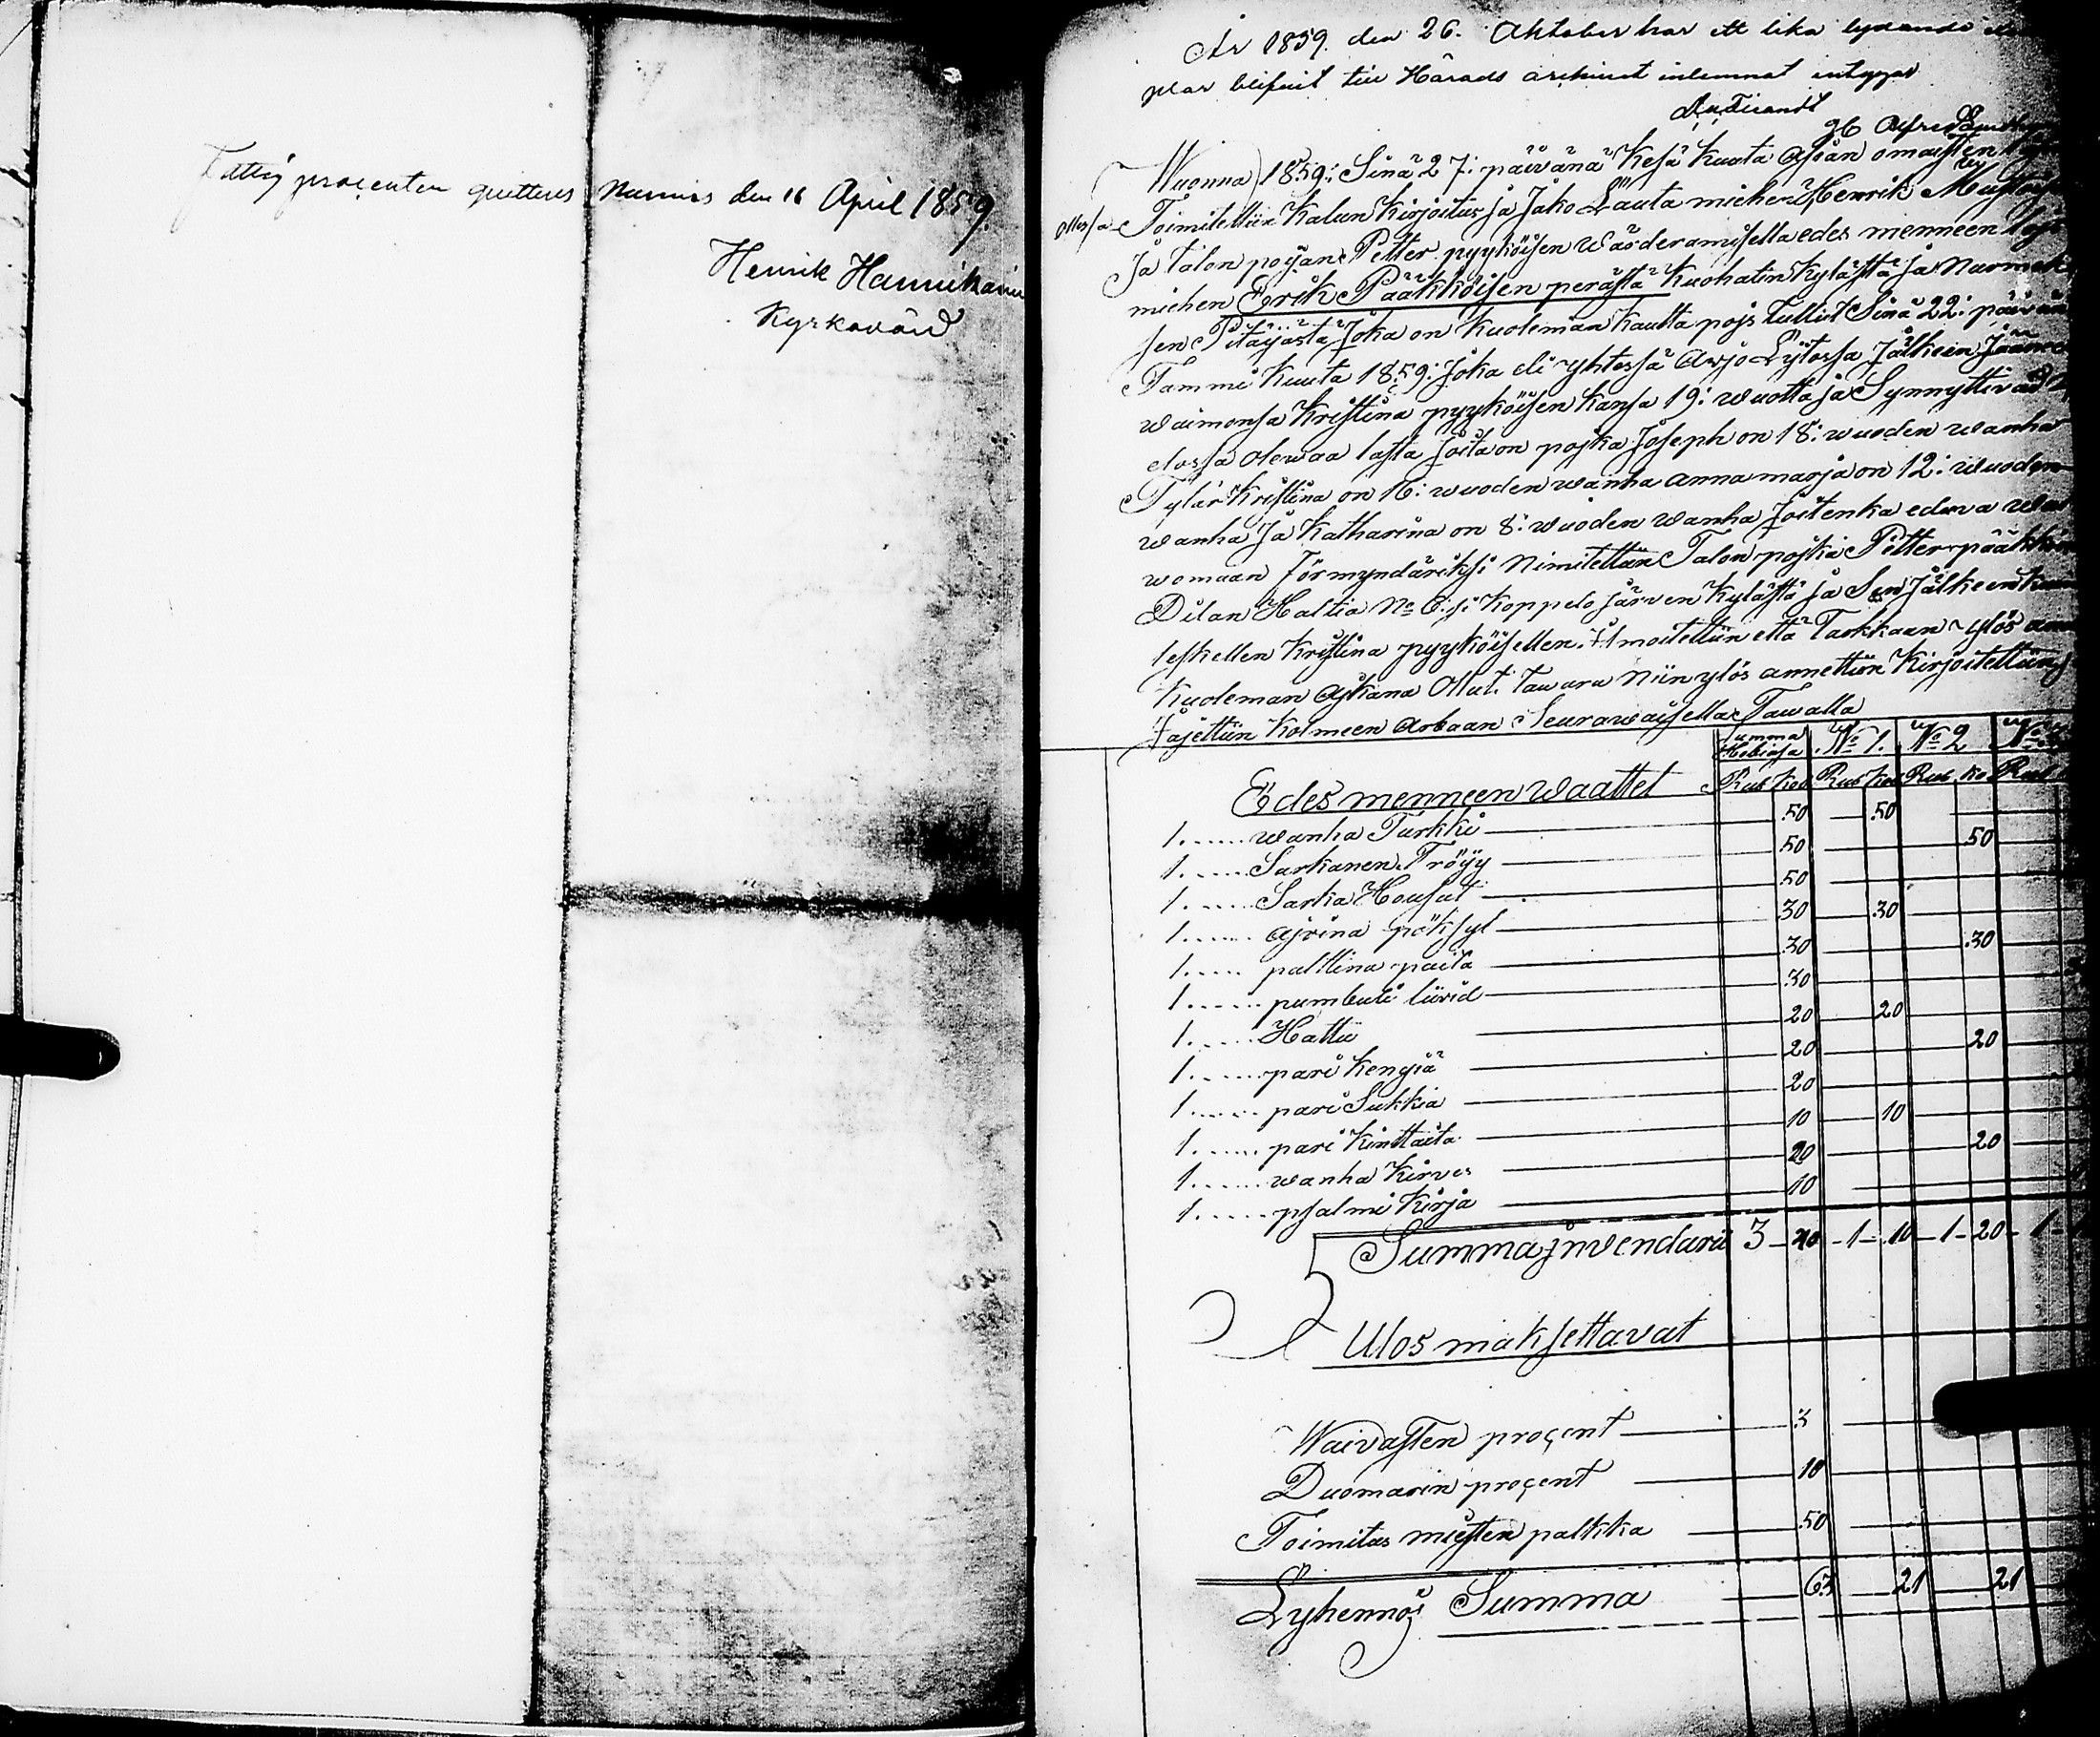 Fattig procenten quitteras Nurmis den 16 April 1859.
Henrik Hannikain
Kyrkovärd
År 1859 den 26. Oktober har ett lika lydande
plar blifvit till Härads arkivet inlemnat intygar
Wuonna 1859: Sinä 27: päivänä Kesä Kuuta asian omaisten
ollessa Toimitettiin Kalun Kirjoitus ja Jako Lauta miehen Henrik
ja talon pojan Petter pyyköisen Wärderamisella edes menneen
miehen Erik Pääkköisen perästä Kuohatin Kylästä ja Nurmek
sen Pitäjästä Joka on Kuoleman Kautta pojs tullut Sinä 22: päivän
Tammi Kuuta 1859: Joka eli yhtessä Avjo Läytössä Jälkein
waimonsa Kristina pyyköisen kansa 19: wuotta ja Synnyttivät
elossa olewaa lasta Joita on pojka Joseph on 18: wuoden wanha
Tytär Kristina on 16: wuoden wanha anna marja on 12: wuoden
wanha ja Katharina on 8: wuoden wanha Joitenka edusa
womaan Förmyndäriksi Nimitettiin Talon pojka Petter pääkkö
Dilan Haltia No 6: si Koppelo järven Kylästä ja Sen Jälkeen
leskellen Kristina pyyköisellen. Ilmoitettiin että Tarkkaan ylös
Kuoleman ajkana Ollut tawara Niin ylös annettiin Kirjoitettiin
Jajettiin Kolmeen Arbaan Seurawaisella Tawalla
Summa Hobiasa No 1. No 2
Edes menneen waattet Rub Kop Rub Kop Rub Ko Rub
1 ...... wanha Turkki 50 50
1 ..... Sarkanen Tröyy 50 50
1 ...... Sarka Housut 50
1 ...... ajvina pöksyt 30 30
1 ..... palttina paita 30 30
1 ...... pumbuli liivid 30
1 ...... Hattu 20 20
1 ...... pari Kengiä 20 20
1 ...... pari Sukkia 20
1 ...... pari Kinttaita 10 10
1 ...... wanha Kirves 20 20
1 ..... psalmi Kirja 10
Summa jnvendarii 3 1 10 1 20 1
Ulos maksettavat
Waivasten proçent 3
Duomarin proçent 10
Toimitus miesten palkka 50
Lyhennös Summa 63 21 21